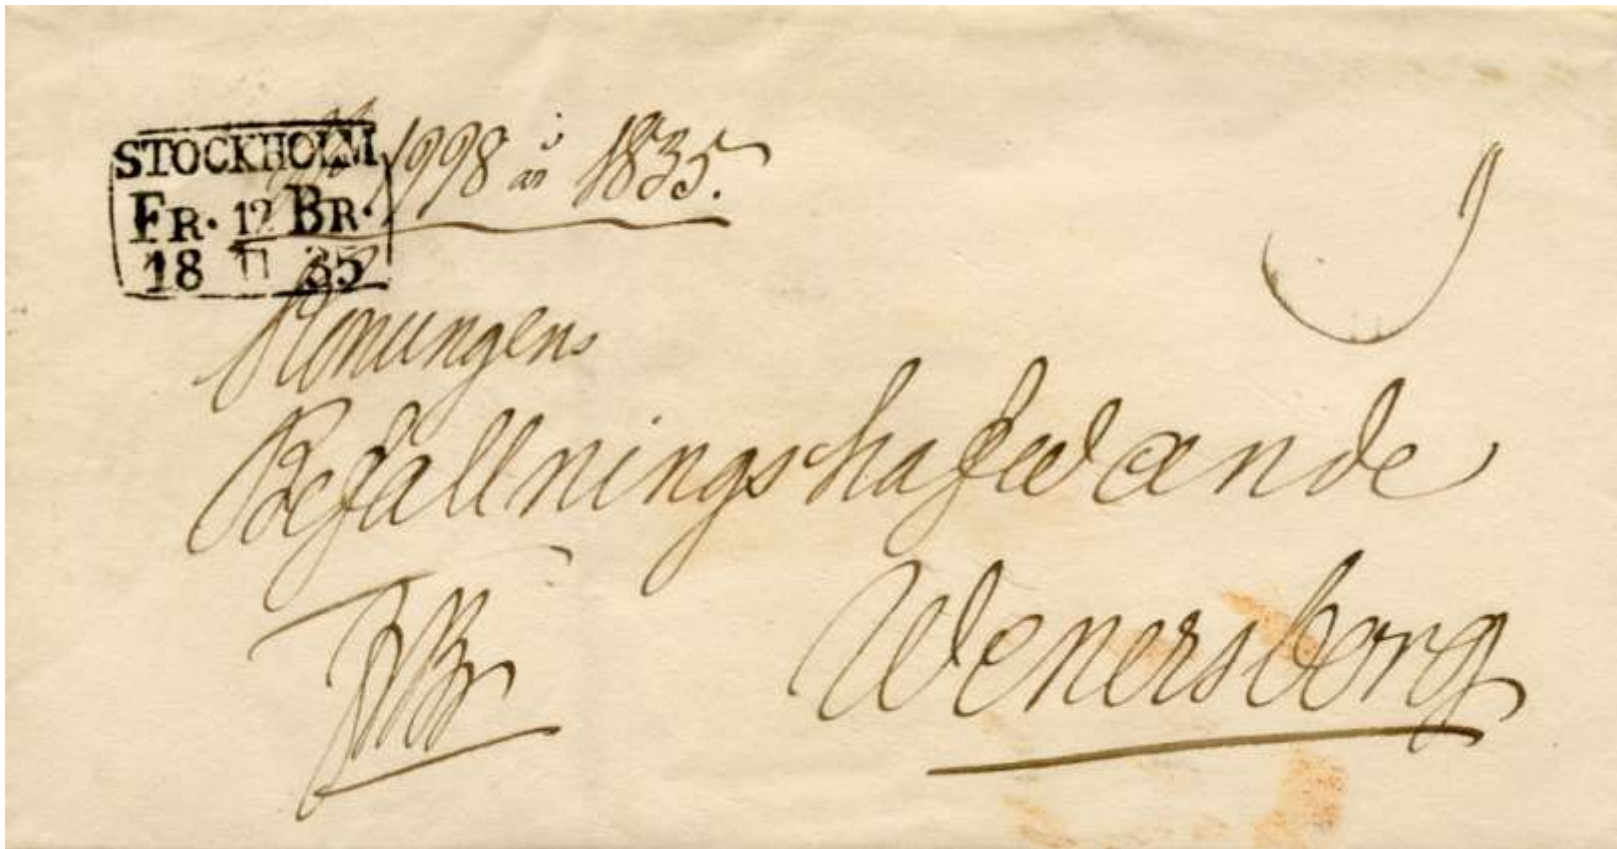 STOCKHOLM
FR. 12 BR.
18 11 35
1998 år 1835.
Konungens
Befallningshafwande
Wenersborg